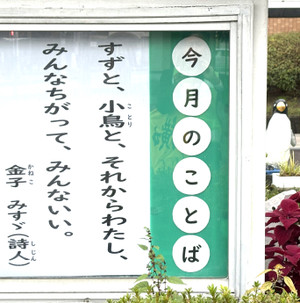 今月のことば
すずと、小鳥と、それからわたし、
ことり
みんなちがって、みんないい。
金子 みすゞ(詩人)
かねこ しじん